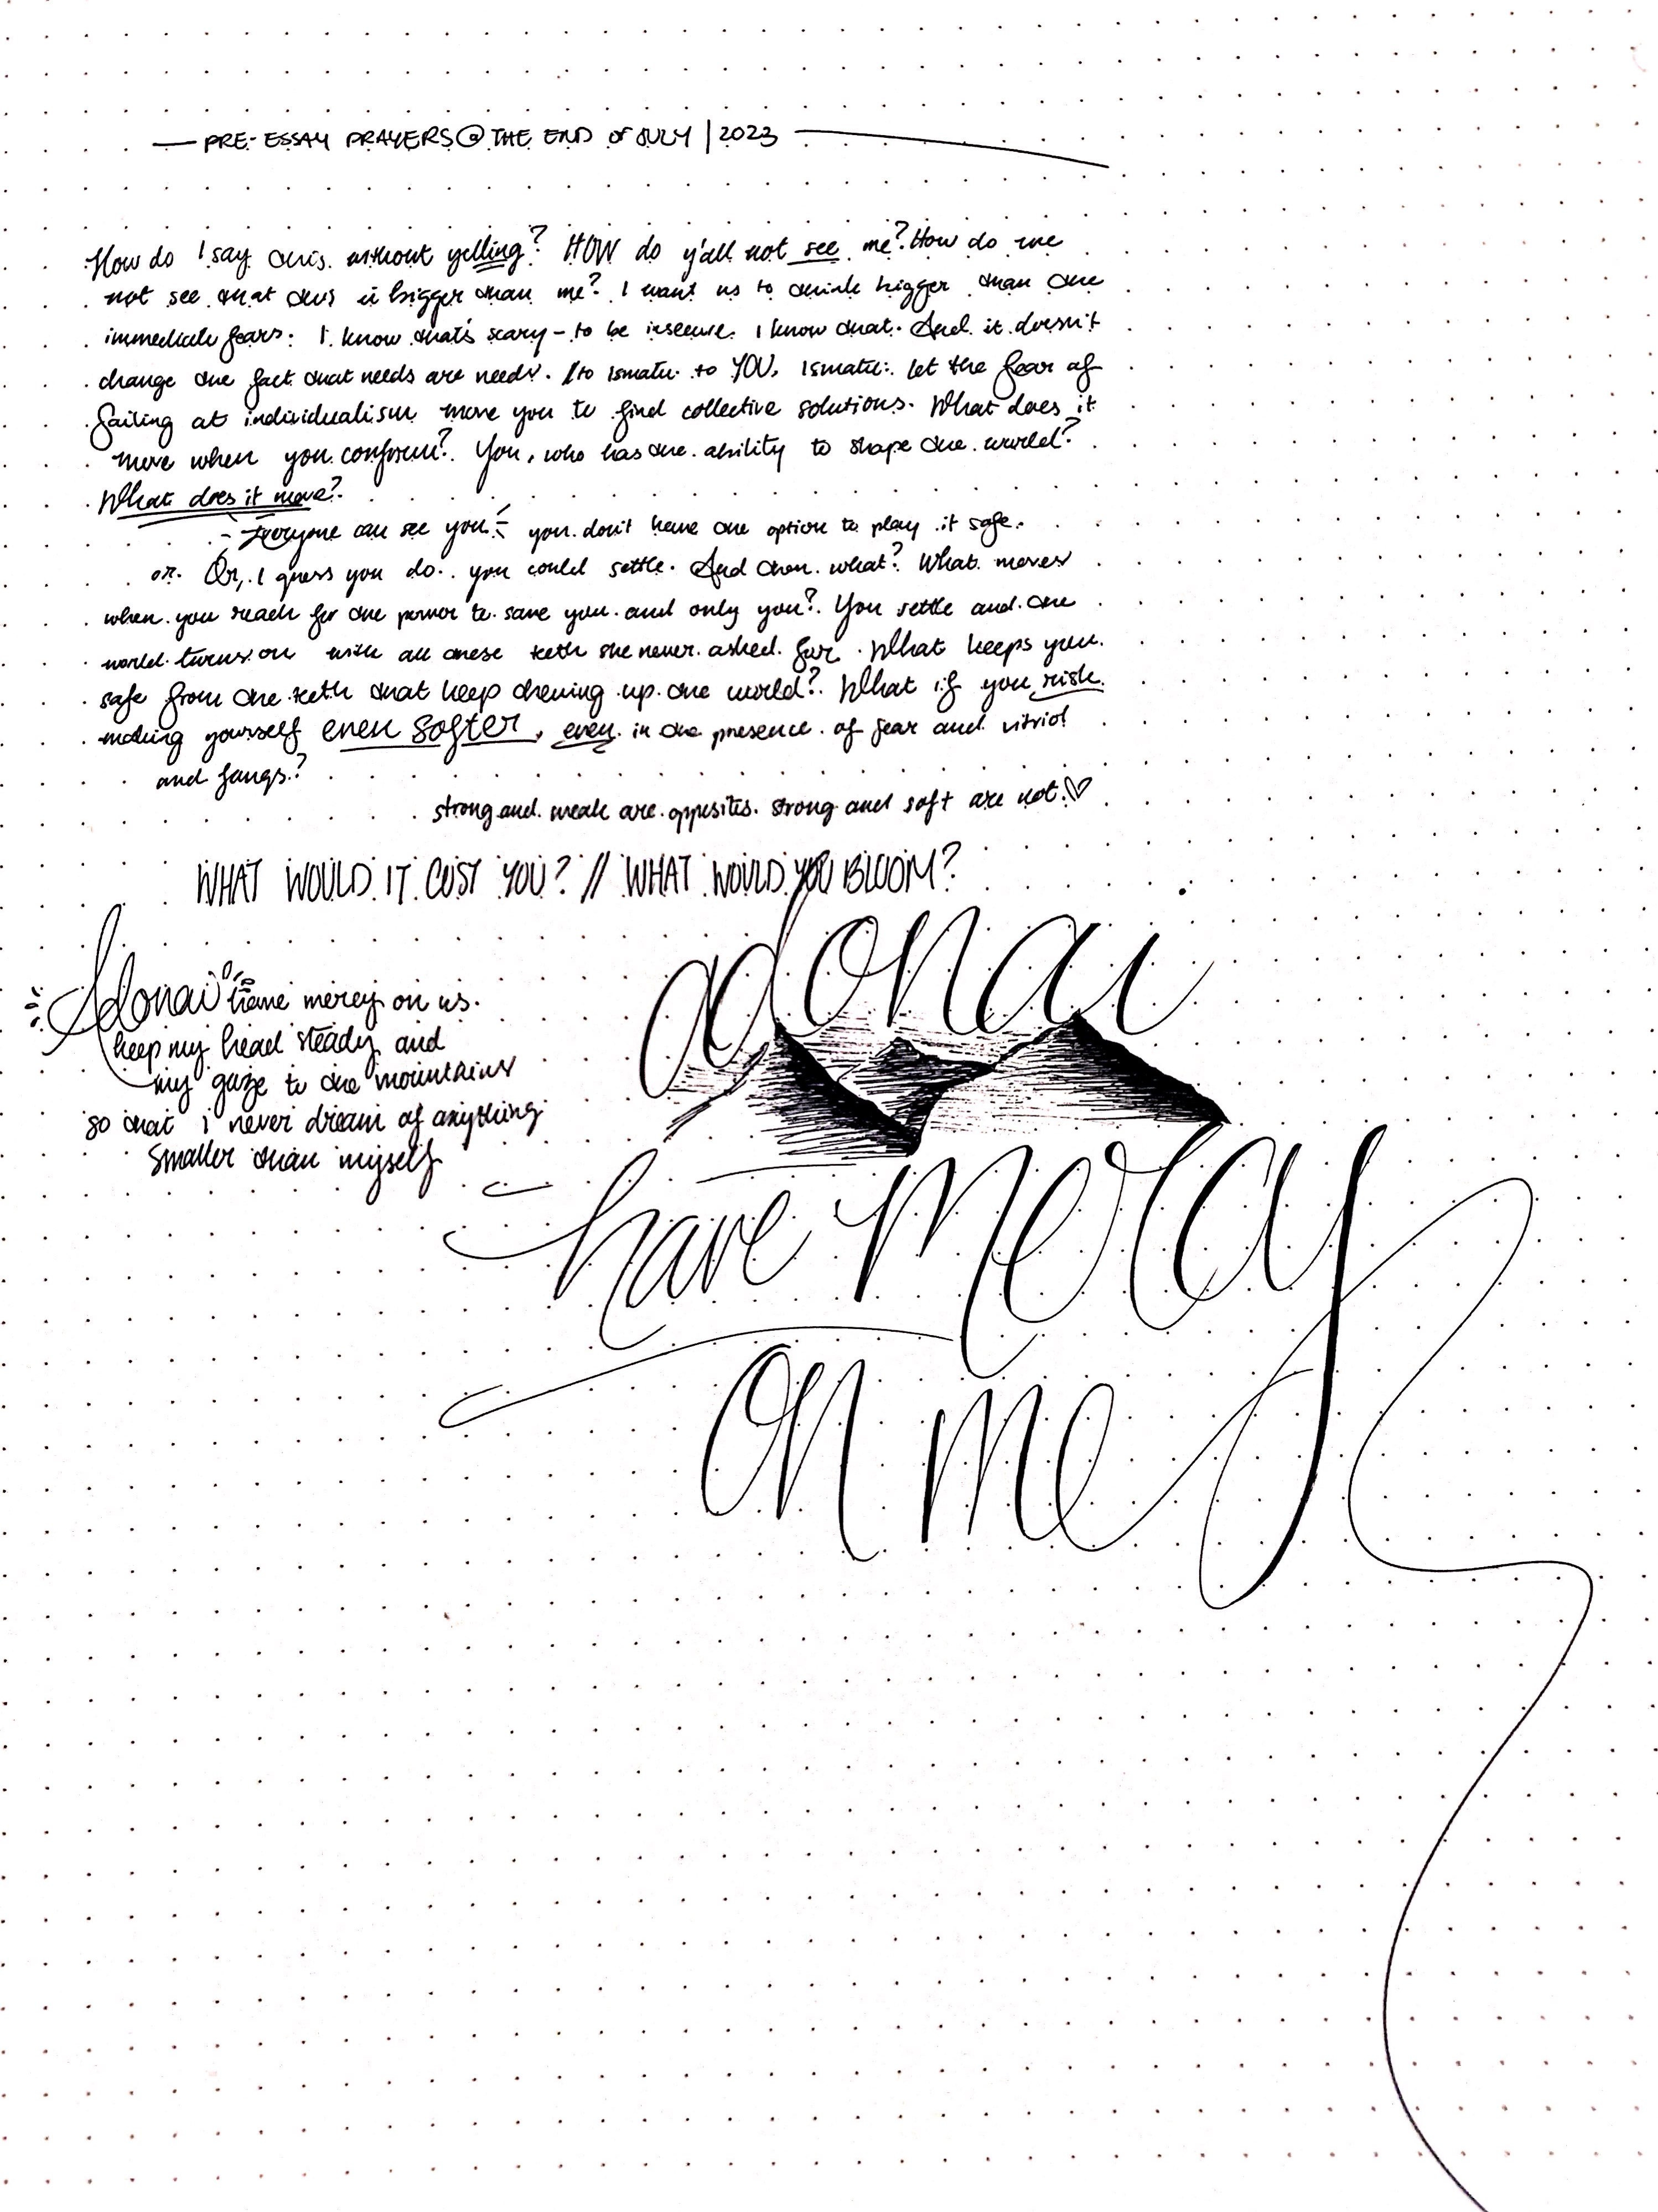 PRE-ESSAY PRAYERS @ THE END OF JULY | 2023
How do I say this without yelling? HOW do y'all not see me? How do we
not see that this is bigger than me? I want us to think bigger than the
immediate fears. I know that's scary – to be insecure. I know that. And it doesn't
change the fact that needs are needs. // to Ismatu. to YOU, Ismatu: let the fear of
failing at individualism move you to find collective solutions. What does it
move when you conform? You, who has the ability to shape the world?
What does it move?
- Everyone can see you - you don't have the option to play it safe.
or. Or, I guess you do. you could settle. And then what? What moves
when you reach for the power to save you and only you? You settle and the
world turns on with all these teeth she never asked for. What keeps you
safe from the teeth that keep chewing up the world? What if you risk
making yourself even softer, even in the presence of fear and vitriol
and fangs?
strong and weak are opposites. strong and soft are not. ♡
WHAT WOULD IT COST YOU? // WHAT WOULD YOU BLOOM?
Adonai have mercy on us.
keep my head steady and
my gaze to the mountains
so that i never dream of anything
smaller than myself
adonai
have mercy
on me